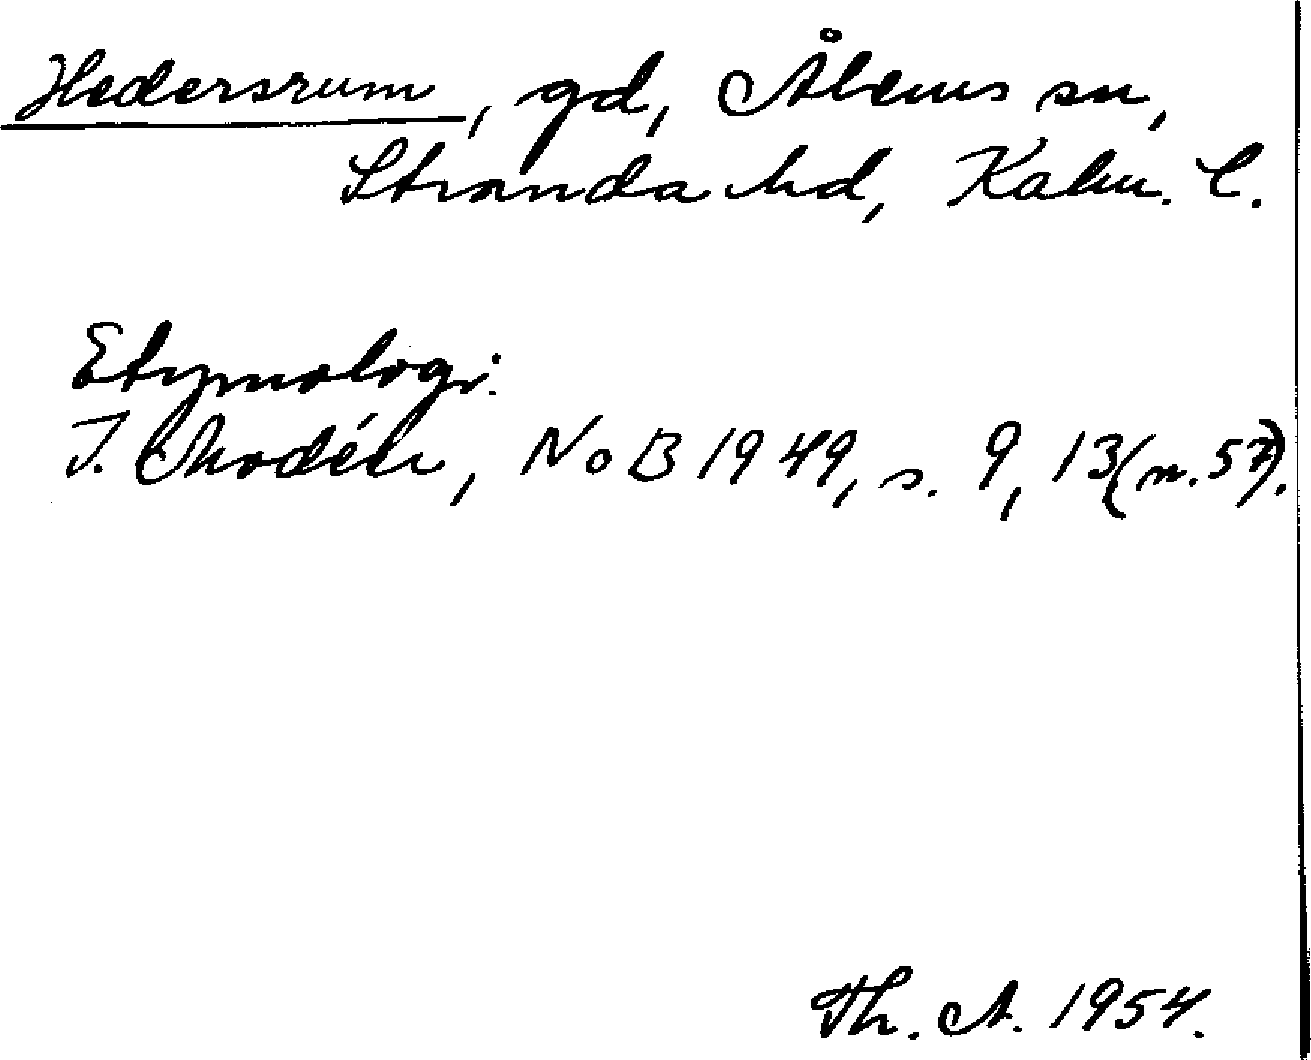 Hedersrum, gd, Ålems sn,
Stranda hd, Kalm. l.
Etymologi.
I. Modéer, NoB 1949, s. 9, 13 (n. 57).
Th. A. 1954.